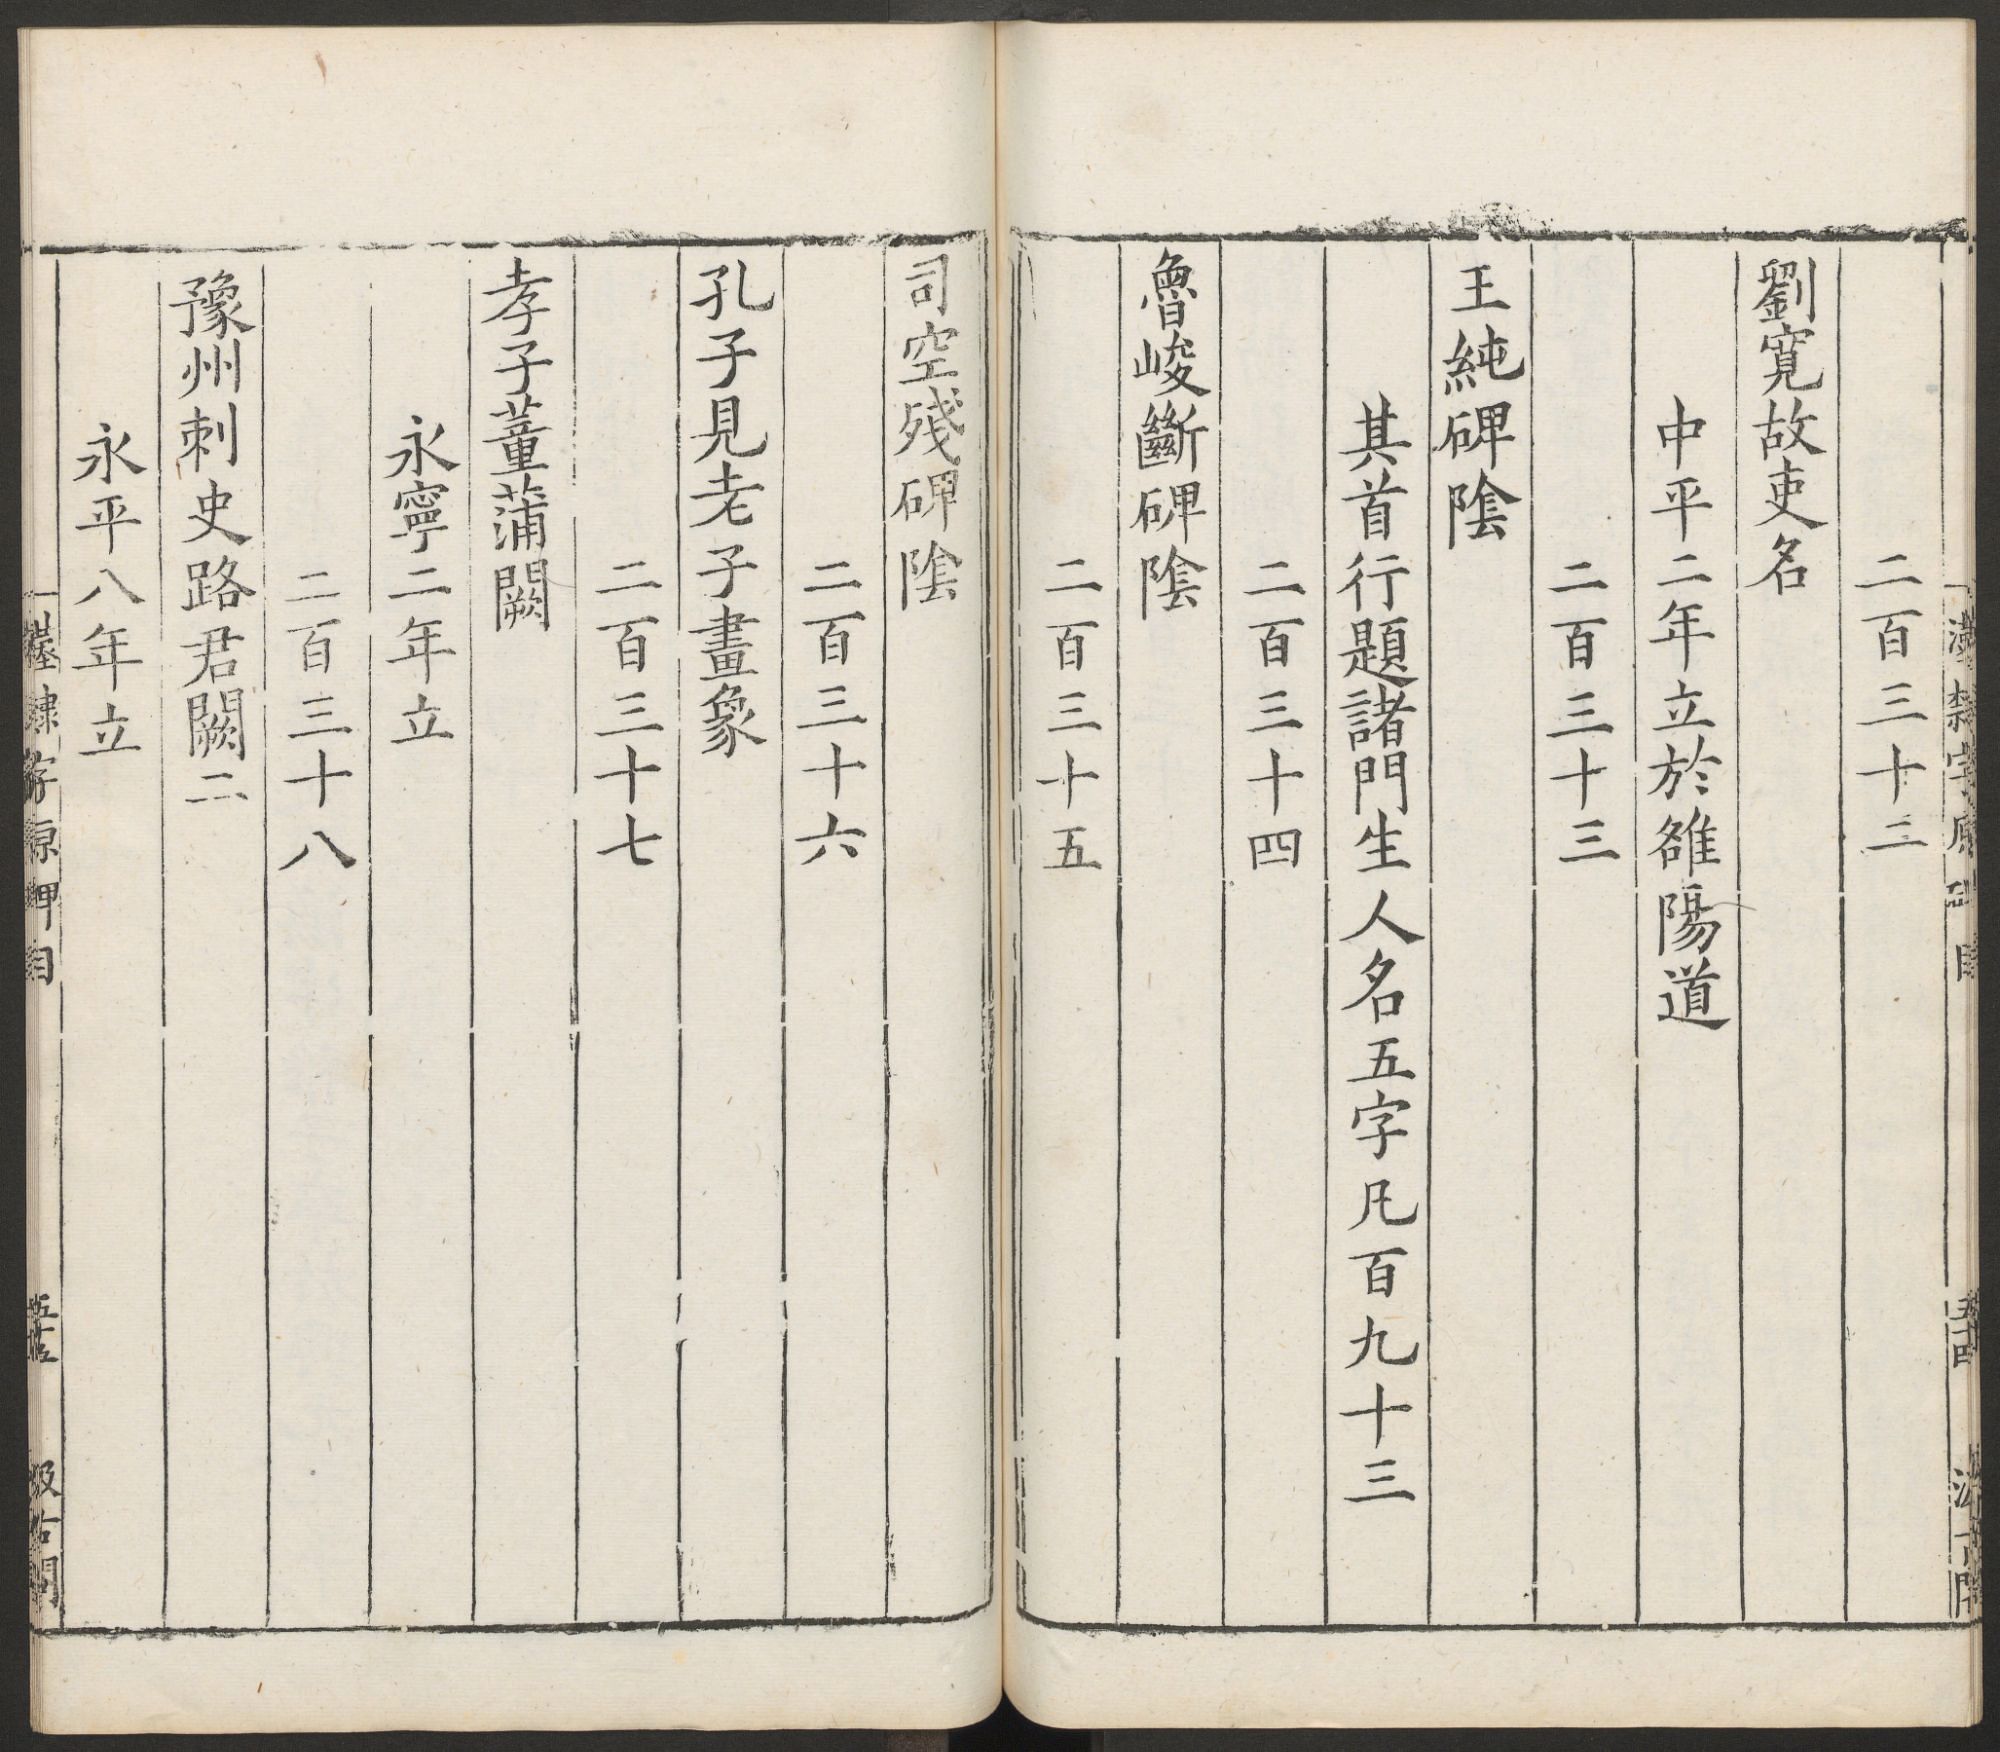 二百三十二
劉寛故吏名
中平二年立於雒陽道
二百三十三
王純碑陰
其首行題諸門生人名五字凡百九十三
二百三十四
魯峻斷碑陰
二百三十五
司空殘碑陰
二百三十六
孔子見老子畫象
二百三十七
孝子董蒲闕
永寧二年立
二百三十八
豫州刺史路君闕二
永平八年立
隸字原碑目
汲古閣